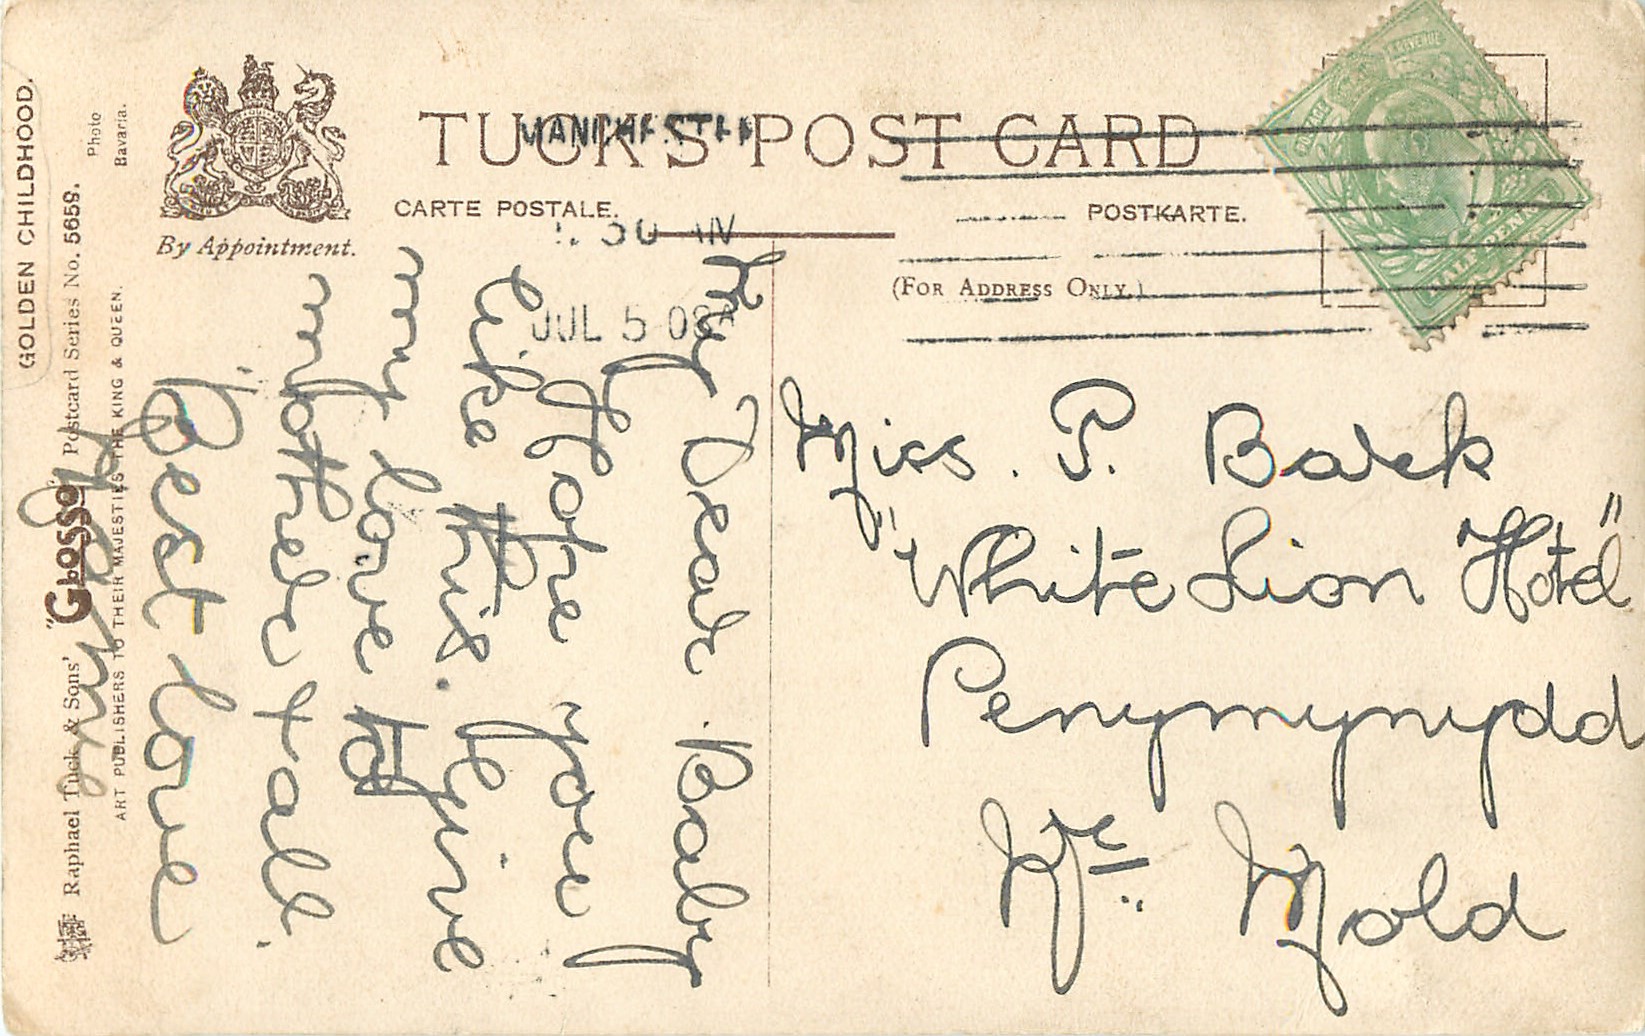 TUCK'S POST CARD
CARTE POSTALE.
POSTKARTE.
(FOR ADDRESS ONLY.)
By Appointment.
MANCHESTER
JUL 5 08
HALF PENNY
GOLDEN CHILDHOOD.
Raphael Tuck & Sons' "GLOSSO" Postcard Series No. 5659.
Photo
Bavaria.
ART PUBLISHERS TO THEIR MAJESTIES THE KING & QUEEN.
My Dear Baby
Hope you
like this. Give
my love to
mother + all.
Best love
Miss. P. Bark
"White Lion Hotel"
Penymynydd
Nr. Mold